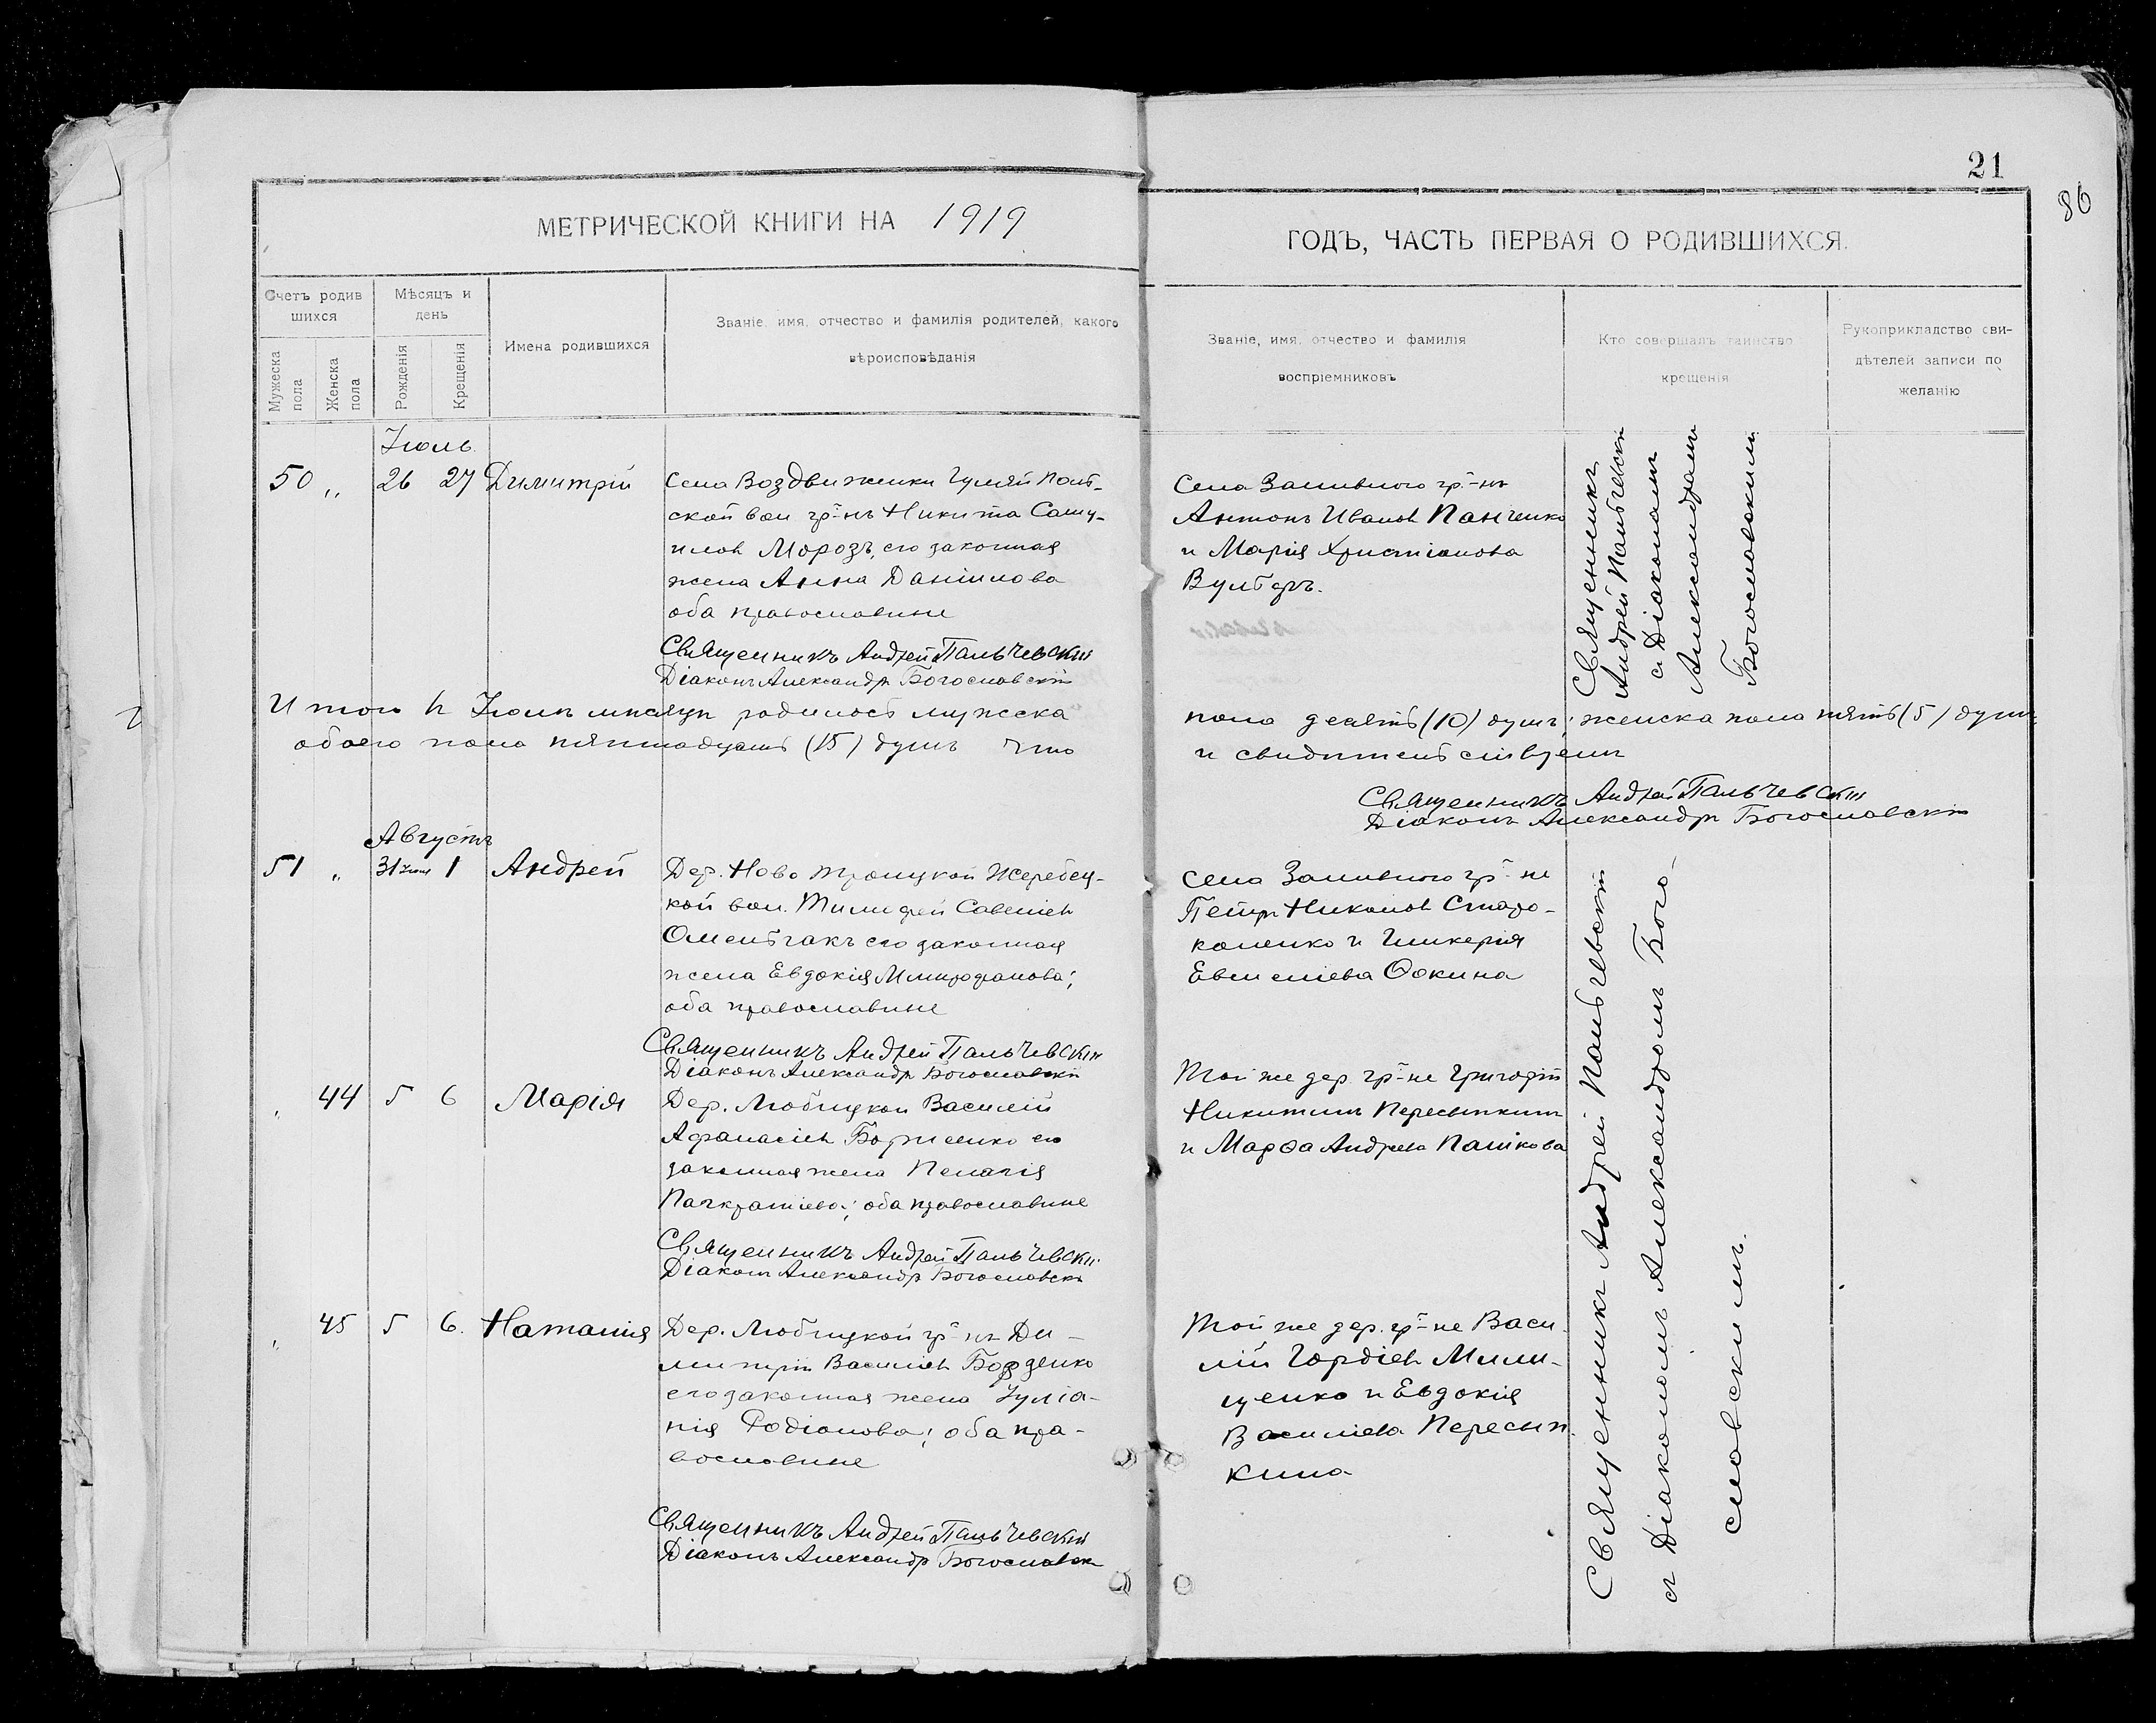 21
86
МЕТРИЧЕСКОЙ КНИГИ НА 1919
ГОДЪ, ЧАСТЬ ПЕРВАЯ О РОДИВШИХСЯ.
Счетъ родив
шихся
Мужеска
пола
Женска
пола
Мѣсяцъ и
день
Рожденія
Крещенія
Имена родившихся
Званіе, имя, отчество и фамилія родителей, какого
вѣроисповѣданія
Званіе, имя, отчество и фамилія
воспріемниковъ
Кто совершалъ таинство
крещенія
Рукоприкладство сви-
дѣтелей записи по
желанію
Іюль
50 „ 26 27 Димитрій
Села Воздвиженки Гуляй Поль-
ской вол гр-нъ Никита Саму-
иловъ Морозъ, его законная
жена Анна Даніилова
оба православные
Священникъ Андрей Пальчевскій
Діаконъ Александръ Богословскій
Села Заливного гр-нъ
Антонъ Ивановъ Панченко
и Марія Христіанова
Вульферъ.
Священникъ
Андрей Пальчевскій
съ Діакономъ
Александромъ
Богословскимъ
Итого въ Іюлѣ мѣсяцѣ родилось мужеска
пола десять (10) душъ; женска пола пять (5) душъ
обоего пола пятнадцать (15) душъ что
и свидѣтельствуемъ
Священникъ Андрей Пальчевскій
Діаконъ Александръ Богословскій
Августъ
51 „ 31 Іюля 1 Андрей
Дер. Ново Троицкой Жеребец-
кой вол. Тимофей Савельевъ
Омельчакъ его законная
жена Евдокія Митрофанова;
оба православные
Священникъ Андрей Пальчевскій
Діаконъ Александръ Богословскій
Села Заливного гр-не
Петръ Никоновъ Старо-
коленко и Гликерія
Ѳокина
44 5 6 Марія
Дер. Любицкой Василій
Афанасіевъ Борисенко его
законная жена Пелагія
Панкратіева; оба православные
Священникъ Андрей Пальчевскій
Діаконъ Александръ Богословскій
Той же дер. гр-не Григорій
Никитинъ Пересыпкинъ
и Марѳа Андреева Пашкова
45 5 6. Наталия
Дер. Любицкой гр-нъ Ди-
митрій Васильевъ Борзенко
его законная жена Іуліа-
нія Родіонова; оба пра-
вославные
Священникъ Андрей Пальчевскій
Діаконъ Александръ Богословскій
Той же дер. гр-не Васи-
лій Гордіевъ Мили-
ценко и Евдокія
Василіева Пересып-
кина
Священникъ Андрей Пальчевскій
съ Діакономъ Александромъ Бого-
словскимъ.